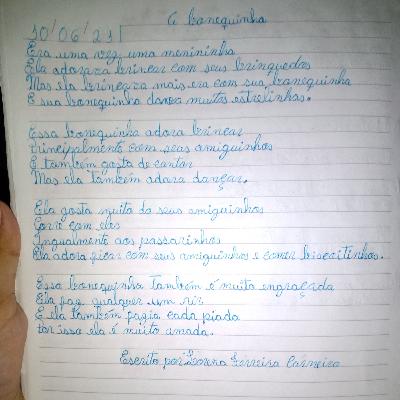 A bonequinha
30/06/21
Era uma vez uma menininha
Ela adorava brincar com seus brinquedos
Mas ela brincava mais era com sua bonequinha
E sua bonequinha dava muitas estrelinhas.
Essa bonequinha adora brincar
Principalmente com seus amiguinhos
E também gosta de cantar
Mas ela também adora dançar.
Ela gosta muito do seus amiguinhos
Corre com eles
Ingualmente aos passarinhos
Ela adora ficar com seus amiguinhos e comer biscoitinhos.
Essa bonequinha também é muito engraçada
Ela faz qualquer um rir
E ela também fazia cada piada
Por isso ela é muito amada.
Escrito por: Lorena Ferreira Carneiro